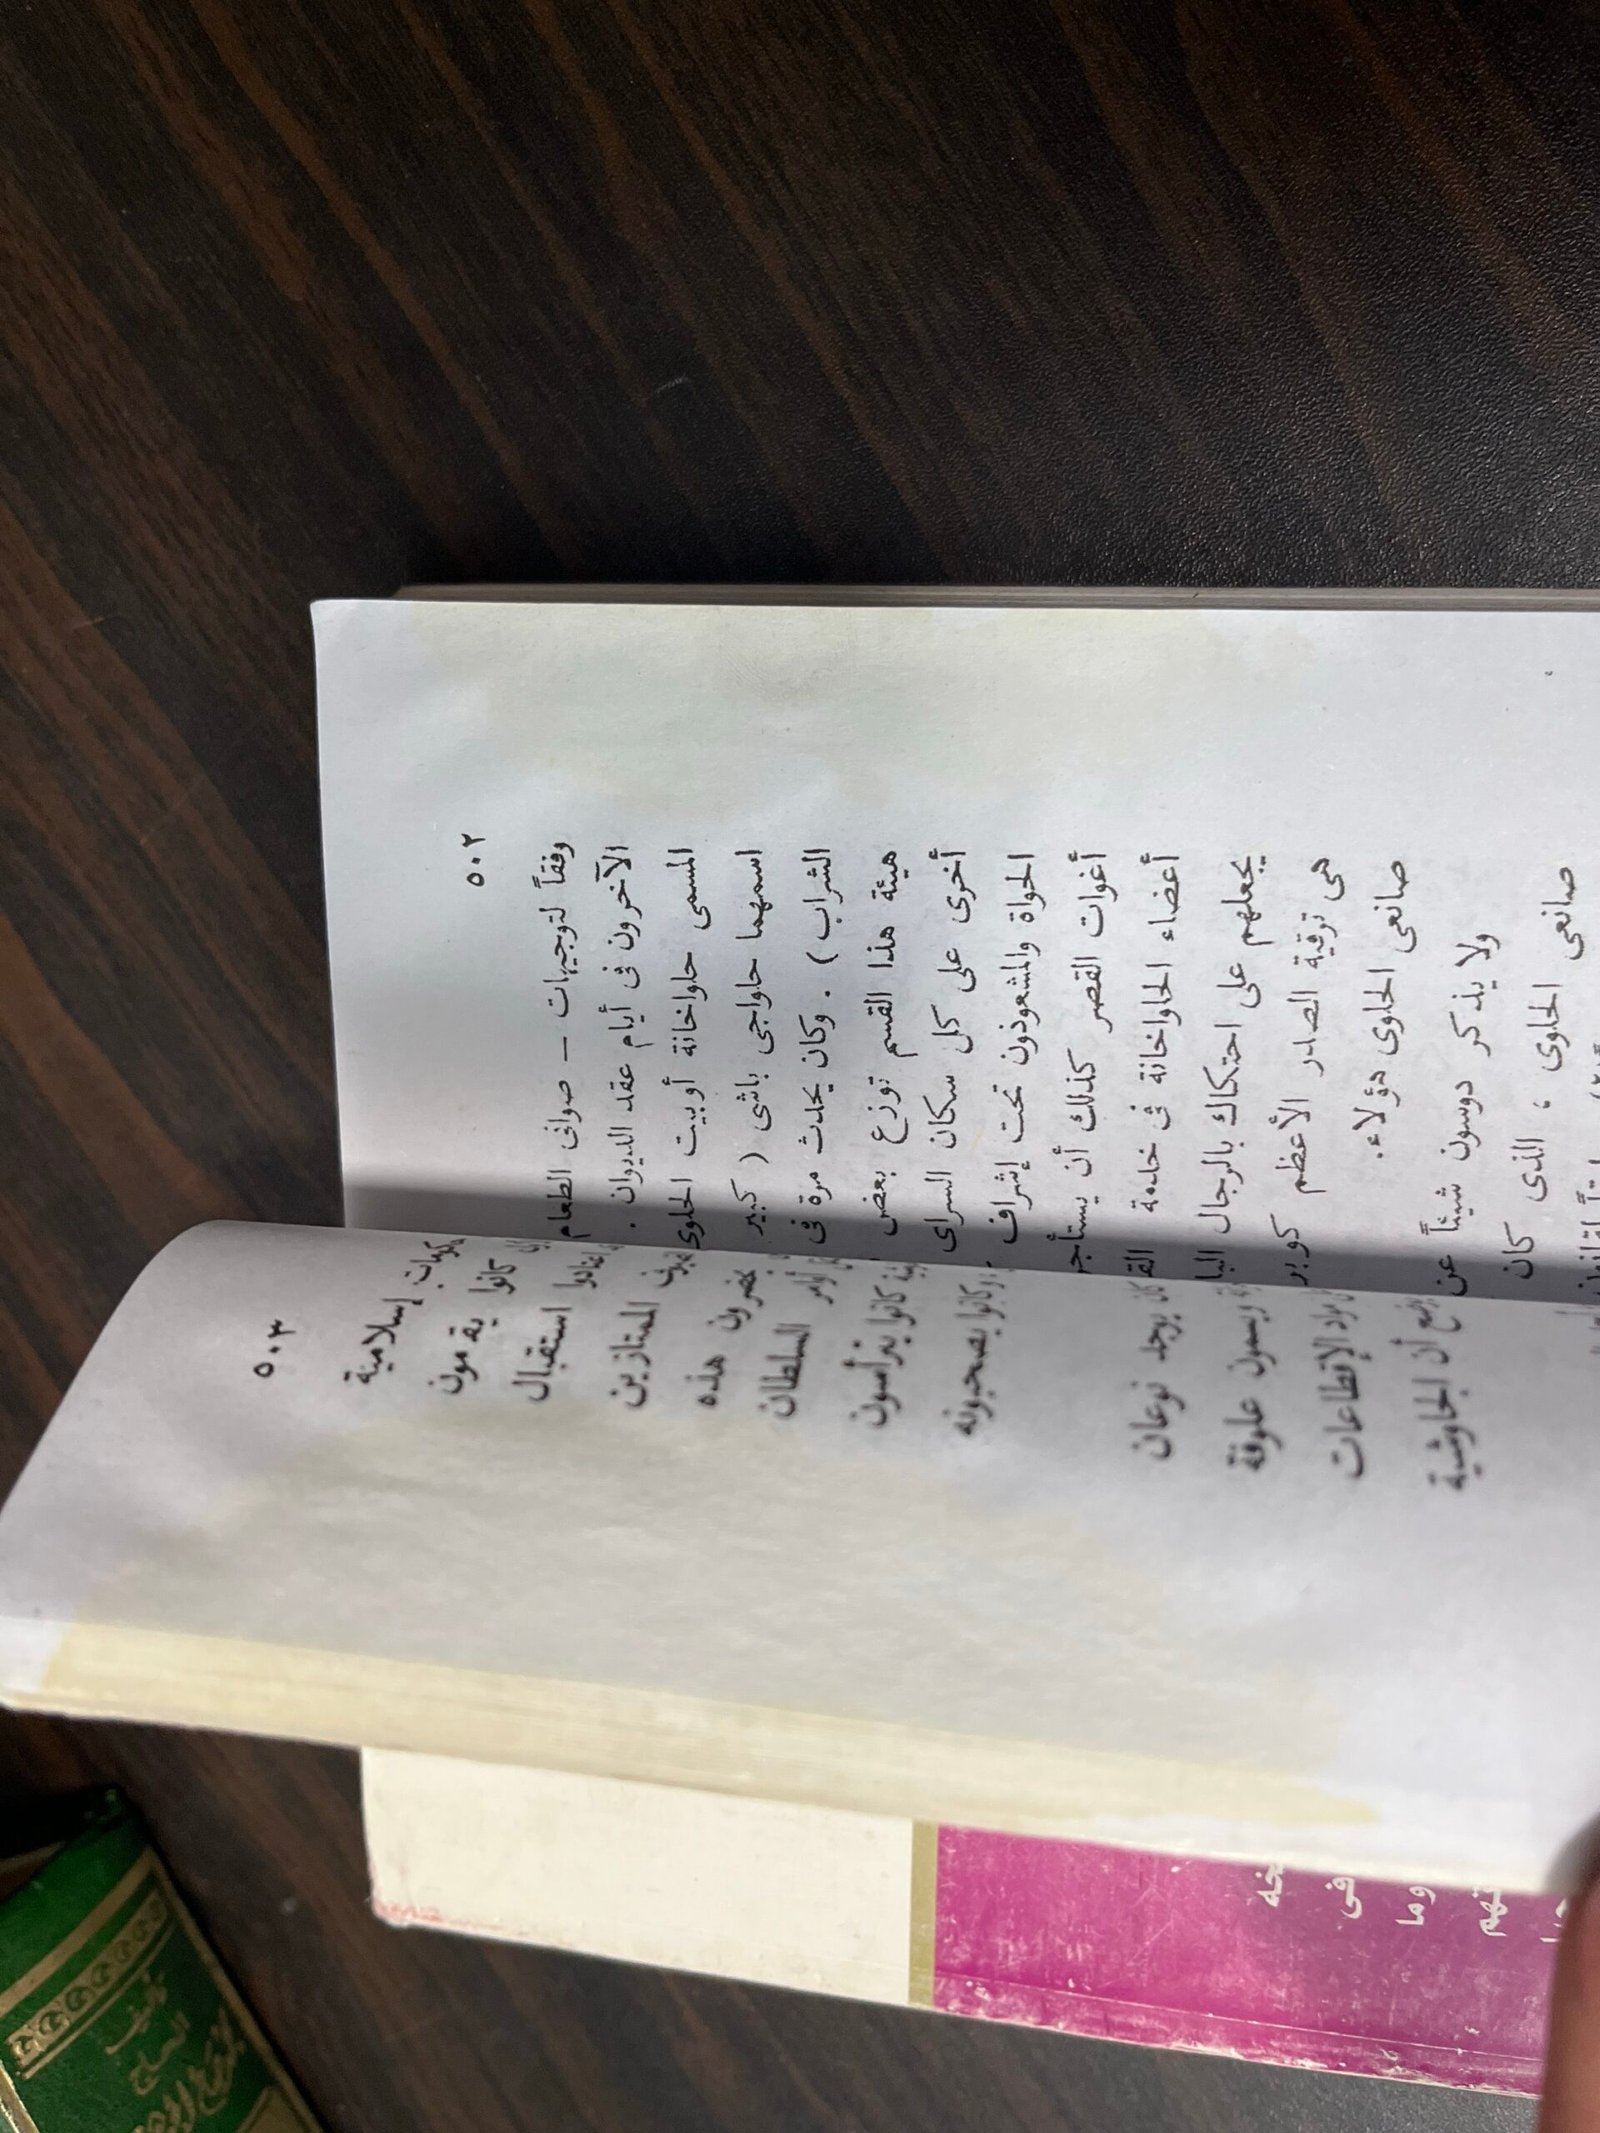 ٥٠٢
وفقاً لتوجيهات — صوانى الطعام
الآخرون فى أيام عقد الديوان .
المسمى حلواخانة أوبيت الحلوى
اسمهما حلواجى باشى ( كبير
الشراب ) . وكان يحدث مرة فى
هيئة هذا القسم توزع بعض
أخرى على كل سكان السراى
الحواة والمشعوذون تحت إشراف
أغوات القصر كذلك أن يستأجر
أعضاء الحلواخانة فى خدمة
يجعلهم على احتكاك بالرجال
هى ترقية الصدر الأعظم كوبر
صانعى الحلوى هؤلاء.
ولا يذكر دوسون شيئاً عن
صانعى الحلوى ، الذى كان
٥٠٣
إسلامية
كانوا يقومون
اعتادوا استقبال
الممتازين
يحضرون هذه
أوامر السلطان
كانوا يترأسون
وكانوا يصحبونه
كان يوجد نوعان
ويسمون علوفة
الإقطاعات
أن الجاوشية
فى
وما
تأليف
الحاج